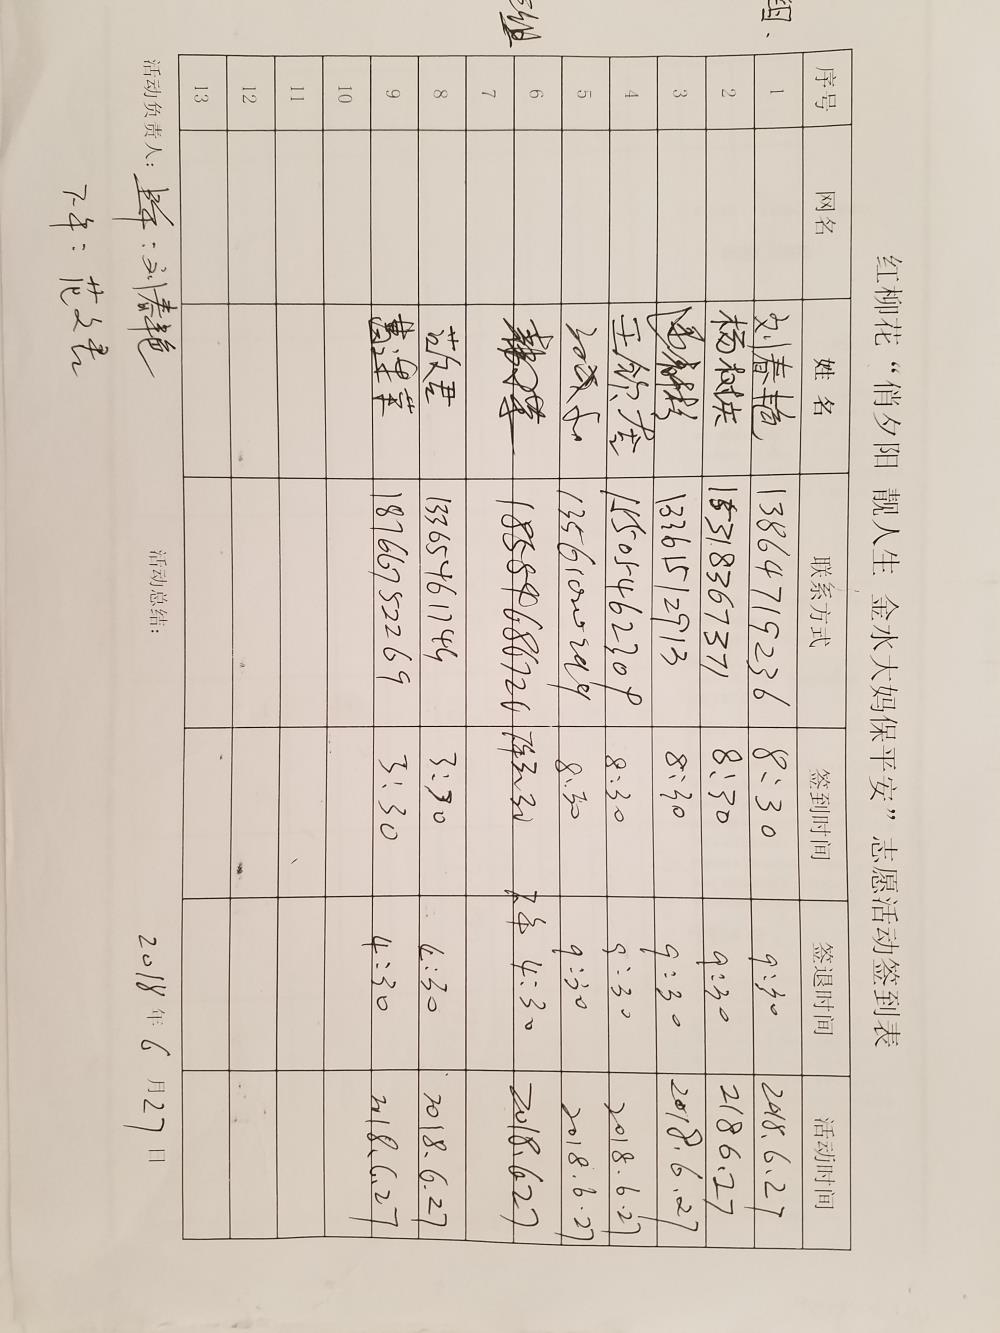 红柳花“俏夕阳 靓人生 金水大妈保平安”志愿活动签到表
序号 网名 姓名 联系方式 签到时间 签退时间 活动时间
1 刘春艳 13864719236 8:30 9:30 2018.6.27
2 杨树洪 8:30 9:30 218 6.27
3 13361512913 8:30 9:30 2018.6.27
4 15505462309 8:30 9:30 2018.6.27
5 8:30 9:30 2018.6.27
6 下午 4:30 2018.627
7
8 13365461744 3:30 4:30 2018.6.27
9 18766752269 3:30 4:30 2018.6.27
10
11
12
13
活动负责人: 上午:刘春艳 活动总结: 2018年6月27日
下午: 范文君